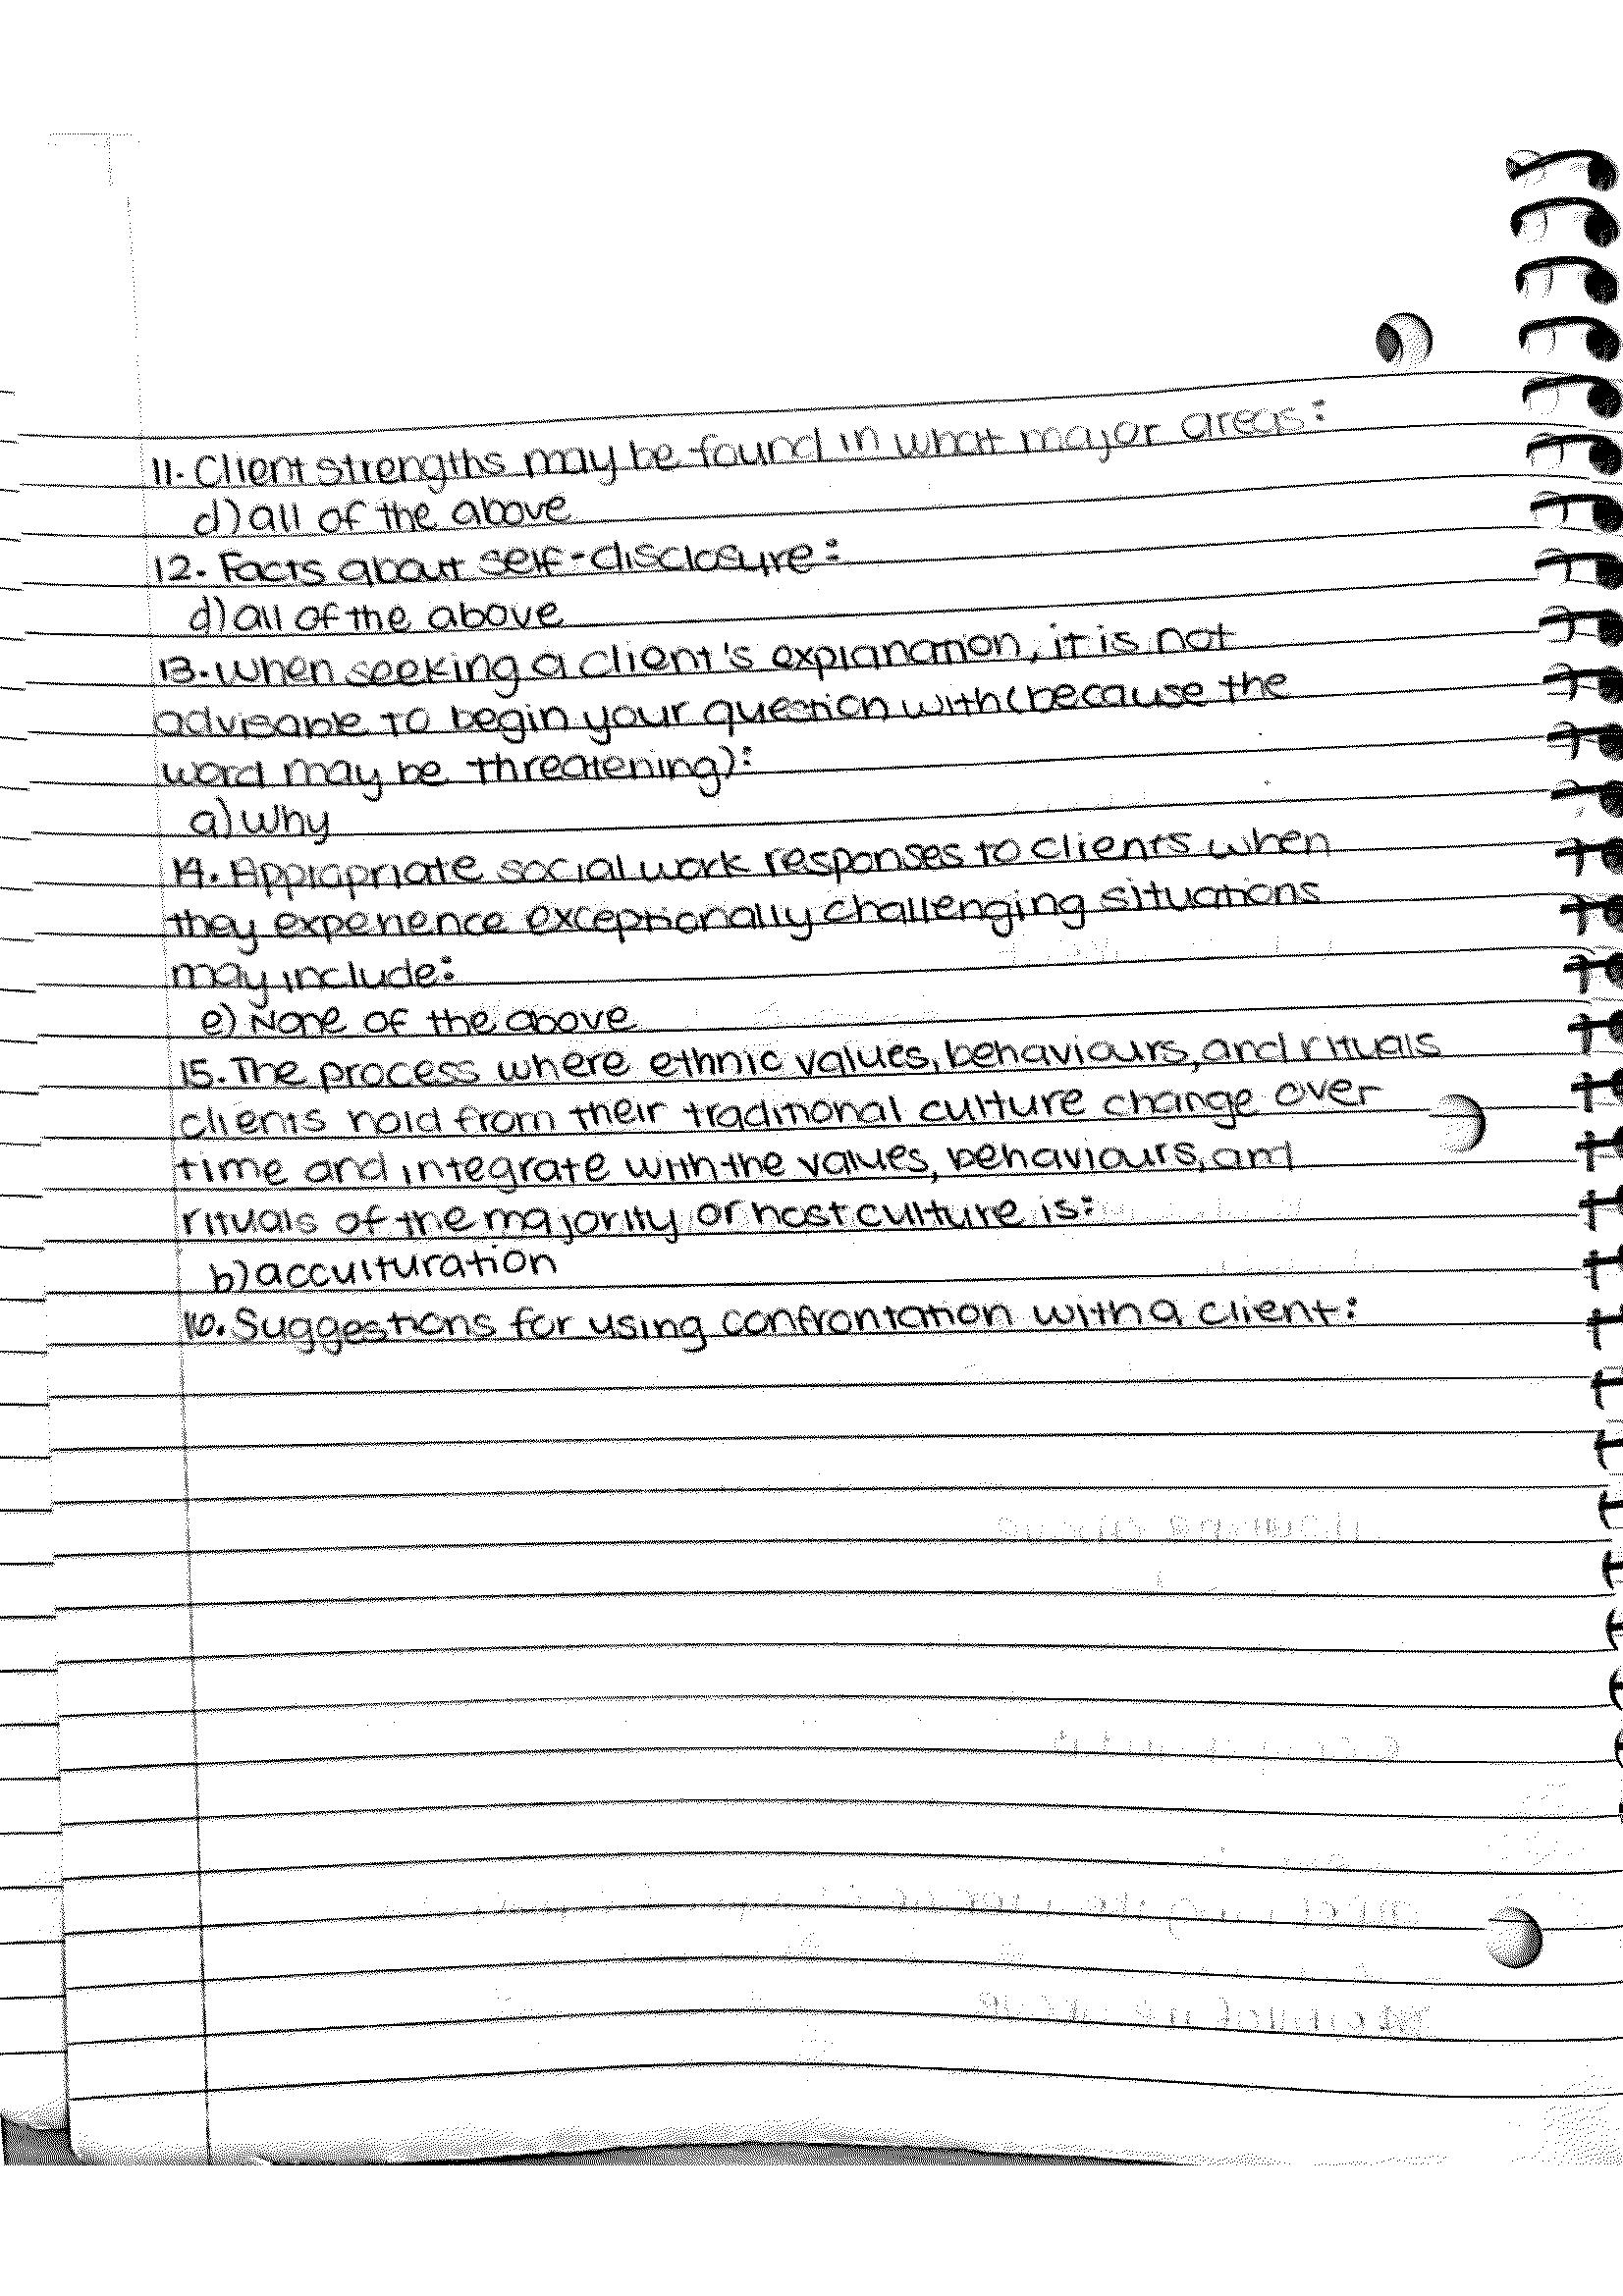 11. Client strengths may be found in what major areas:
d) all of the above
12. Facts about self-disclosure:
d) all of the above
13. When seeking a client's explanation, it is not
advisable to begin your question with (because the
word may be threatening):
a) Why
14. Appropriate social work responses to clients when
they experience exceptionally challenging situations
may include:
e) None of the above
15. The process where ethnic values, behaviours, and rituals
clients hold from their traditional culture change over
time and integrate with the values, behaviours, and
rituals of the majority or host culture is:
b) acculturation
16. Suggestions for using confrontation with a client: